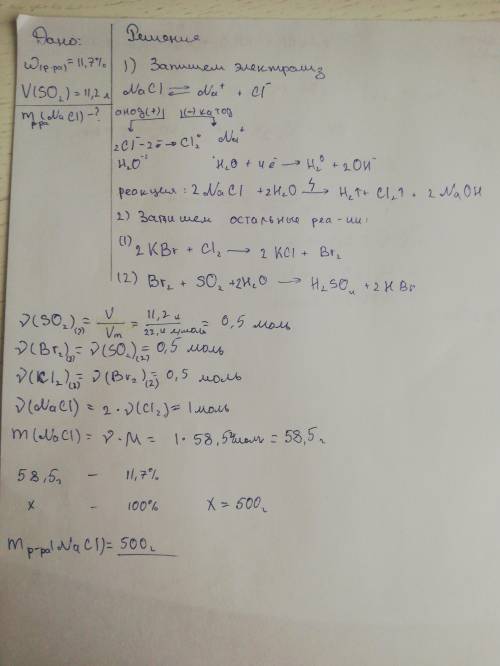 Дано:
ω(р-ра) = 11,7%
V(SO₂) = 11,2 л
m р-ра (NaCl) - ?
Решение
1) Запишем электролиз
NaCl ⇌ Na⁺ + Cl⁻
анод(+) | (-) катод
2Cl⁻ - 2ē → Cl₂⁰ Na⁺
H₂O⁻² H₂O + 4ē → H₂⁰ + 2OH⁻
реакция: 2NaCl + 2H₂O → H₂↑ + Cl₂↑ + 2NaOH
2) Запишем остальные реа-ии:
(1) 2KBr + Cl₂ → 2KCl + Br₂
(2) Br₂ + SO₂ + 2H₂O → H₂SO₄ + 2HBr
ν(SO₂) = V/Vm = 11,2 л / 22,4 л/моль = 0,5 моль
ν(Br₂) = ν(SO₂)(2) = 0,5 моль
ν(Cl₂) = ν(Br₂)(2) = 0,5 моль
ν(NaCl) = 2·ν(Cl₂) = 1 моль
m(NaCl) = ν·M = 1·58,5 г/моль = 58,5 г
58,5г - 11,7%
x - 100% X = 500г
m р-ра(NaCl) = 500г